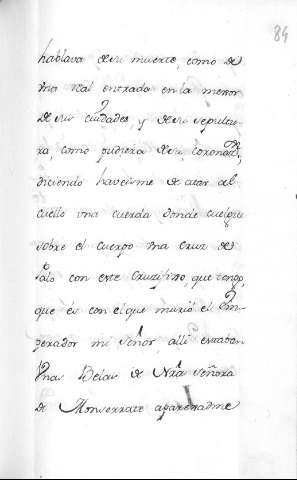 84
hablava de su muerte, como de
una real entrada en la menor
de sus ciudades, y de su sepultu-
ra, como pudiera de su coronaon,
diciendo haveisme de atar al
cuello una cuerda donde cuelgue
sobre el cuerpo una cruz de
palo con este cruzifixo, que tengo,
que és con el que murió el Em-
perador mi señor, alli estaban
Unas Velas de Nra señora
de Monserrate aparexadme